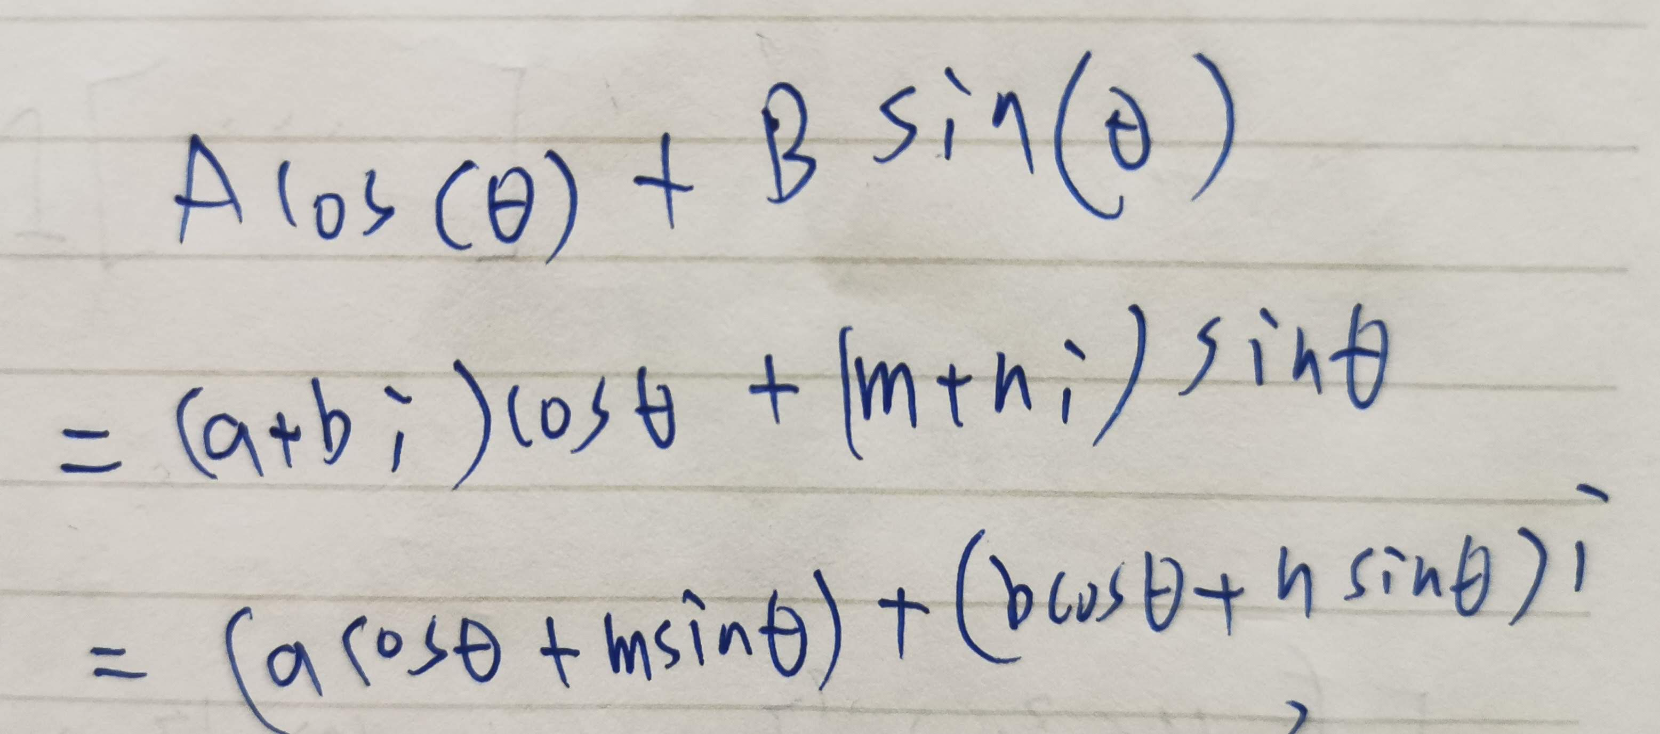 A cos(θ) + B sin(θ)
= (a+bi)cosθ + (m+ni) sinθ
= (a cosθ + msinθ) + (bcosθ + n sinθ)i